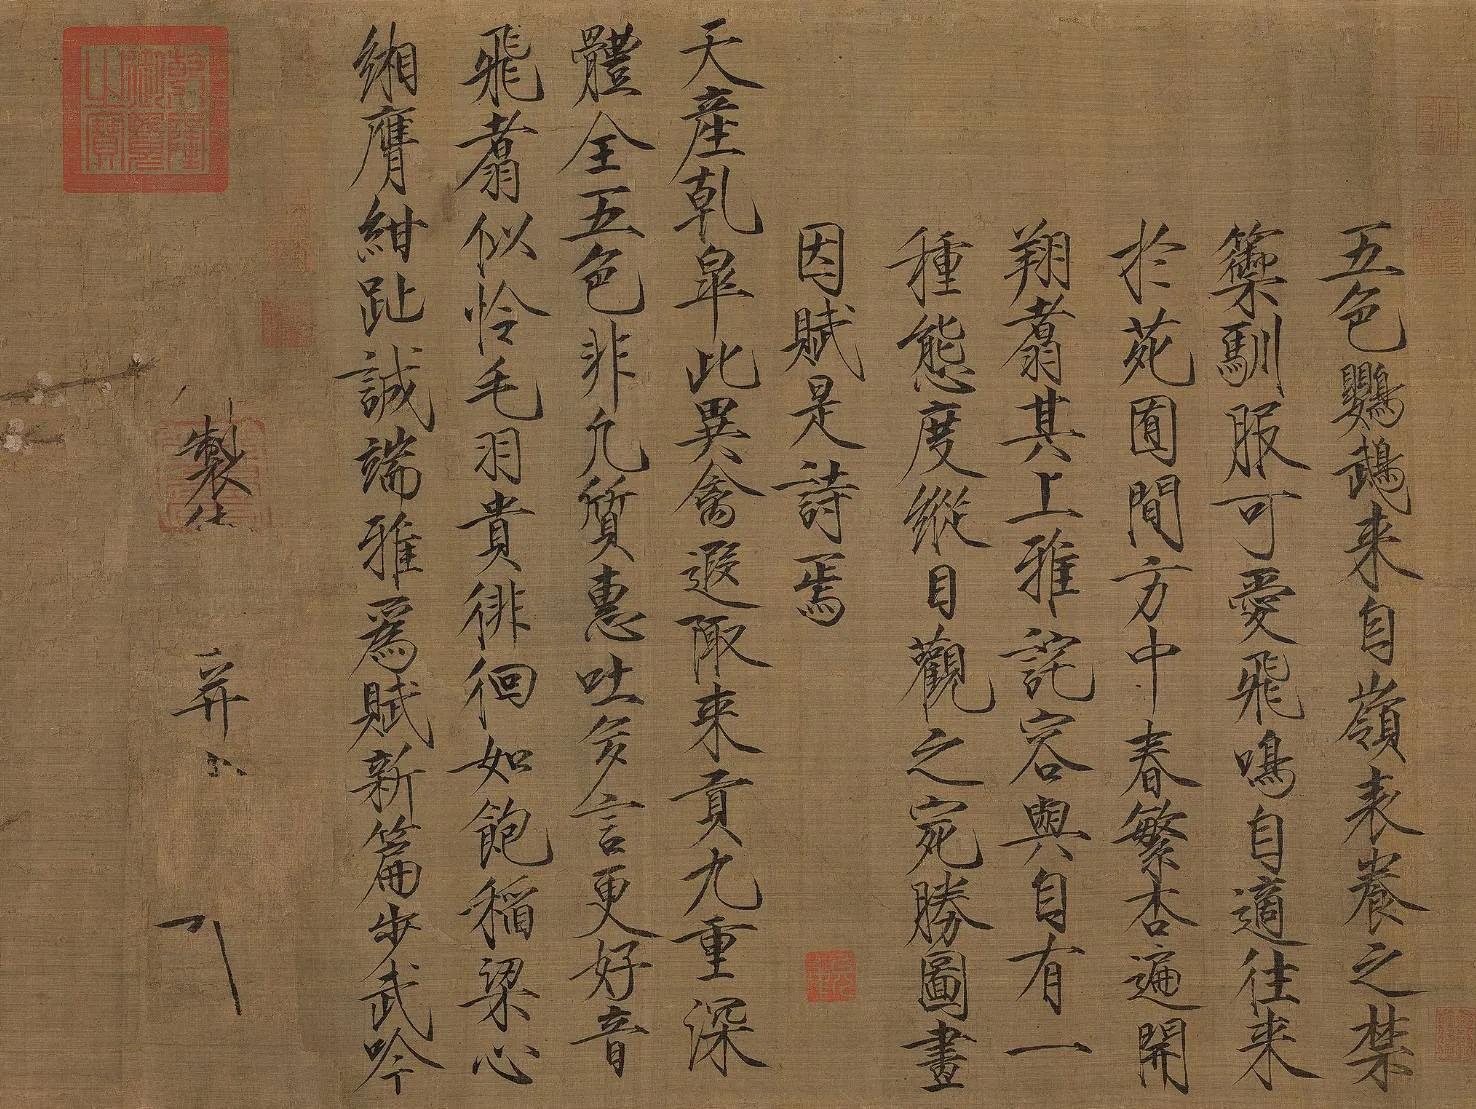 五色鸚鵡来自嶺表養之禁
籞馴服可愛飛鳴自適往来
於苑囿間方中春繁杏遍開
翔翥其上雅詫容與自有一
種態度縱目觀之宛勝圖畫
因賦是詩焉
天産乾皐此異禽遐陬来貢九重深
體全五色非凡質惠吐多言更好音
飛翥似怜毛羽貴徘徊如飽稲粱心
緗膺紺趾誠端雅爲賦新篇步武吟
製
并